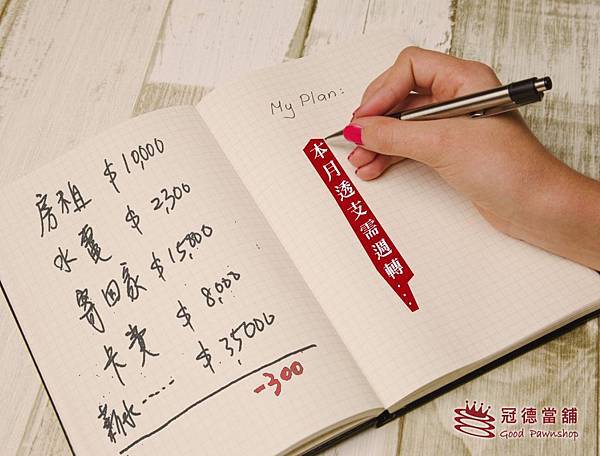 房租 $10,000
水電 $2,300
寄回家 $15,000
卡費 $8,000
薪水..... $35,000
-300
My Plan:
本月透支需週轉...
冠德當舖
Good Pawnshop